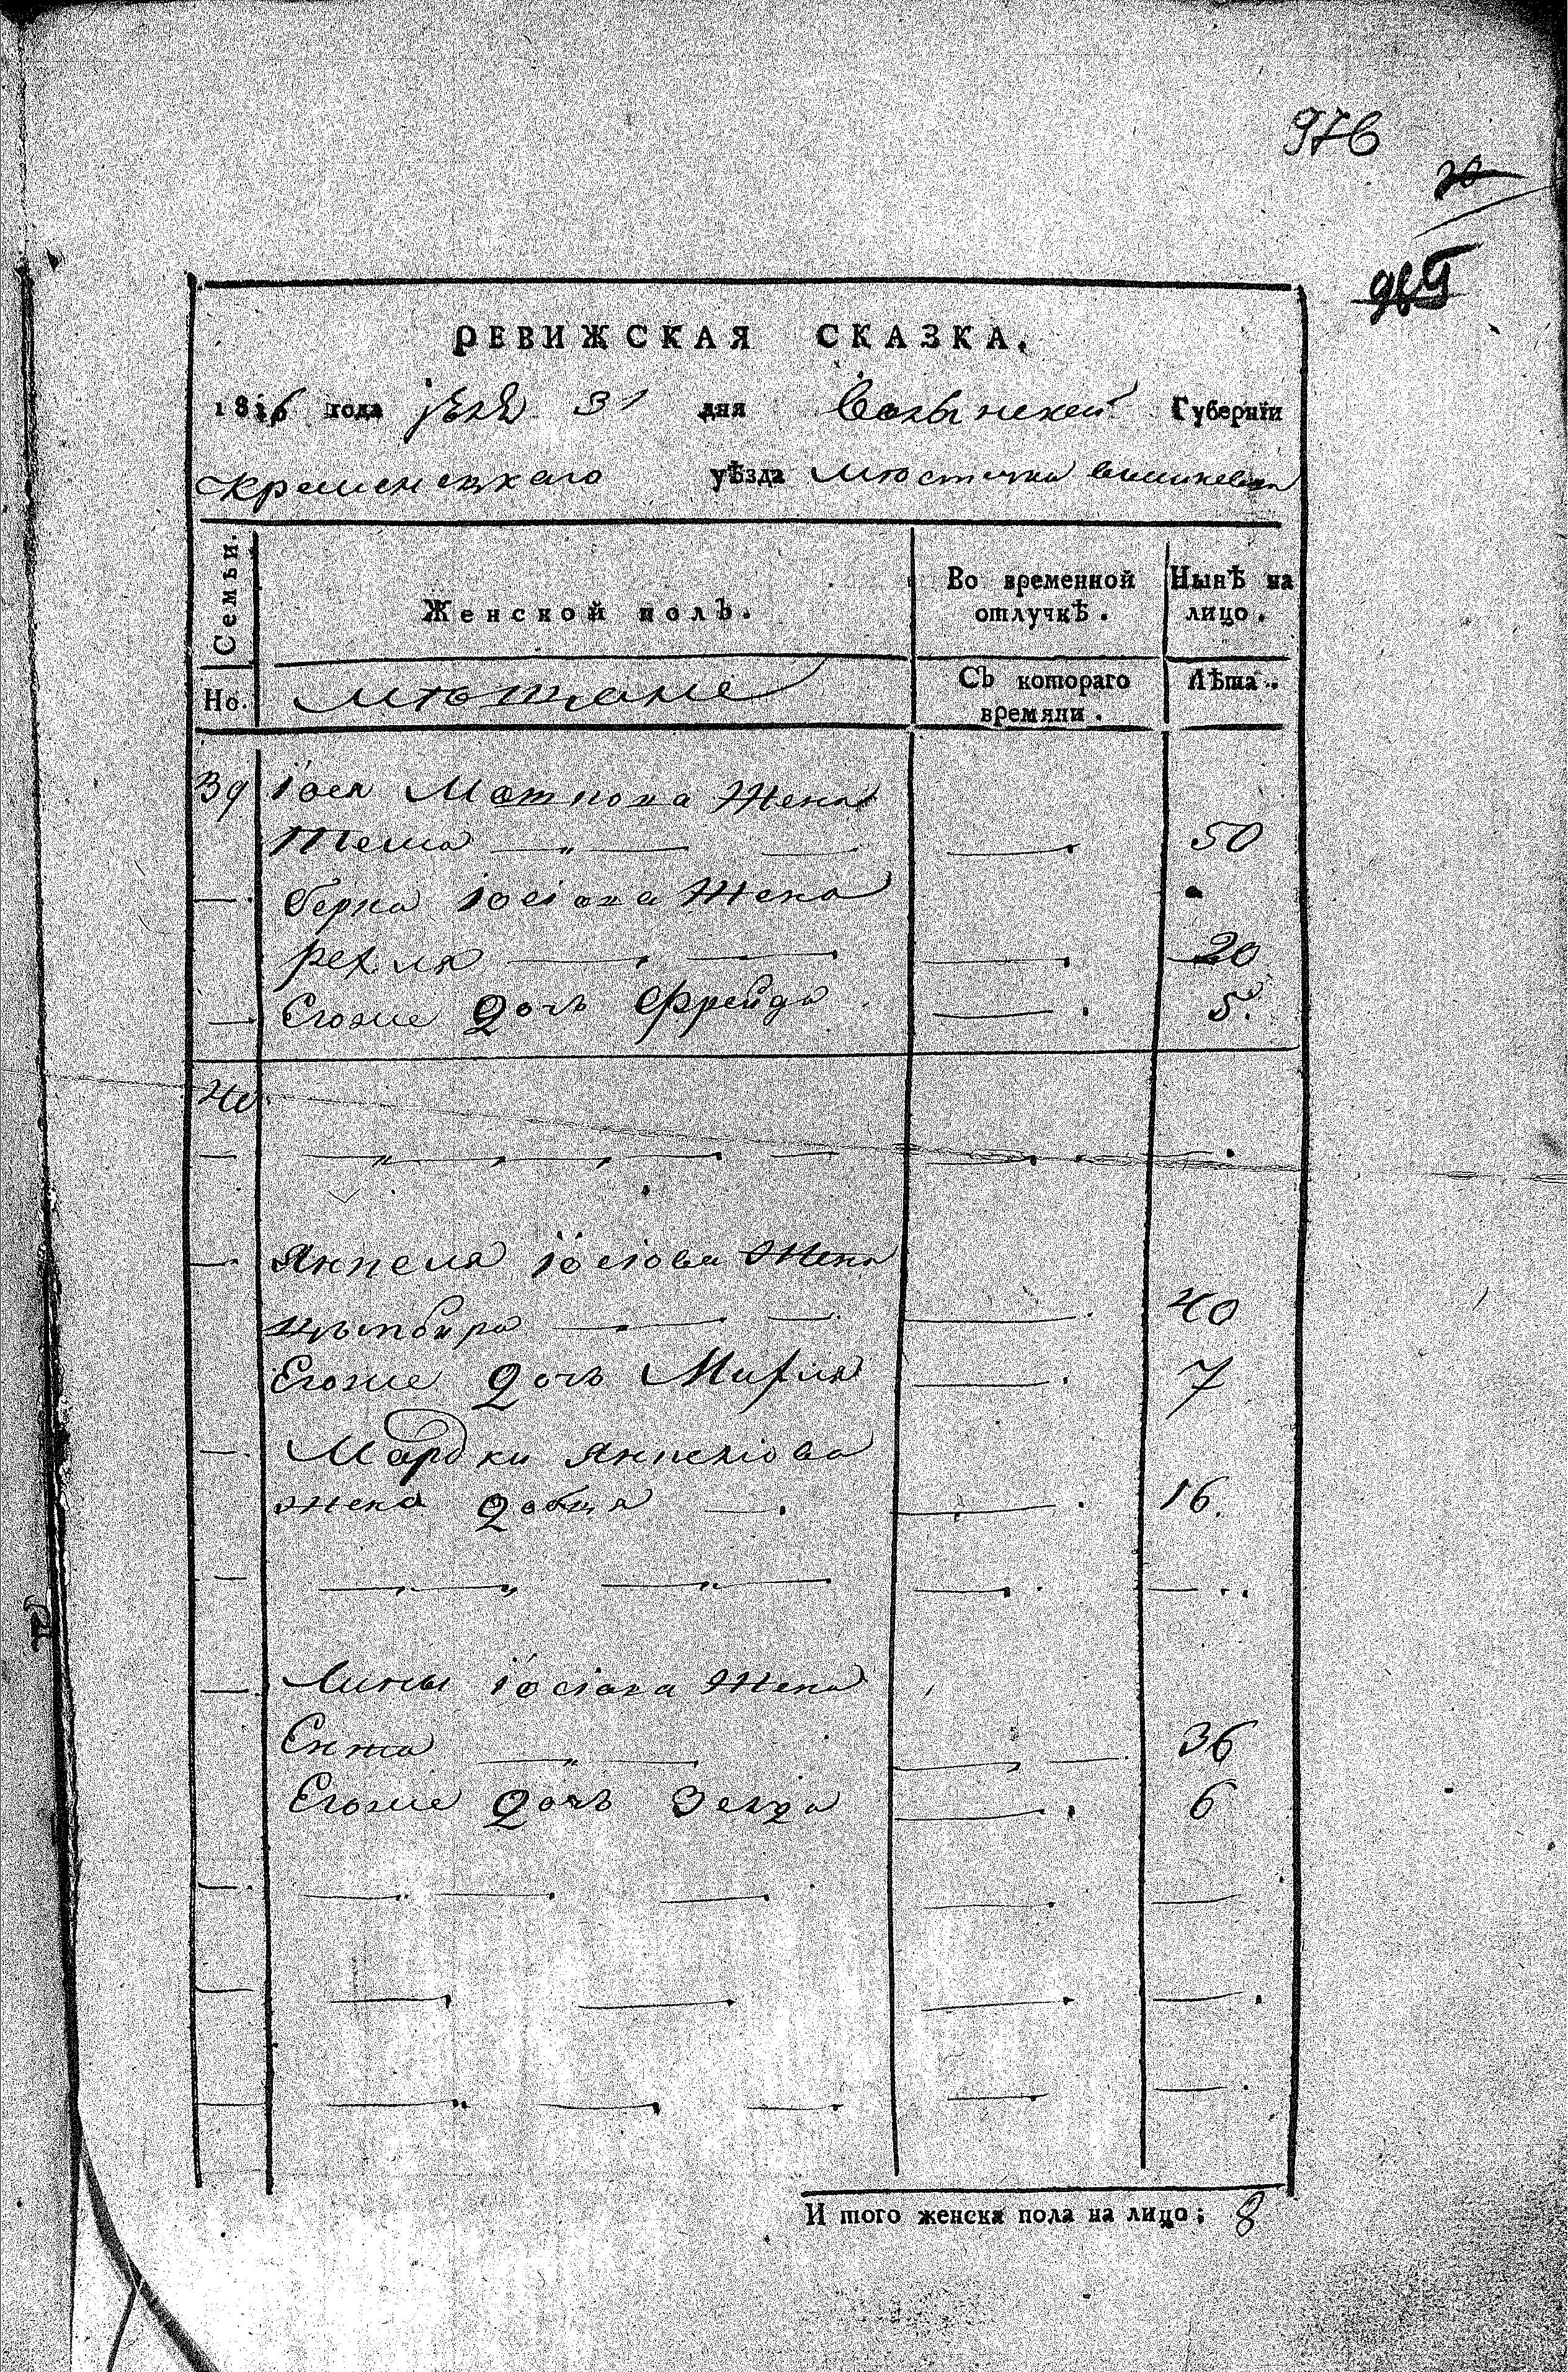 976
20
965
РЕВИЖСКАЯ СКАЗКА.
1816 года 31 дня Волынской Губернїи
Кременецкаго уѣзда Мюстечка Вишневца
Семьи.
Женской полъ.
Во временной отлучкѣ.
Нынѣ на лицо.
Но.
мющане
Съ котораго времяни.
Лѣта.
39 Іося Маткова Жена
Тема 50
Берка Іосіова Жена
Рехля 20
Егоже Дочь Фрейда 5.
40
Янкеля Іосіова Жена
40
Егоже Дочь Мирля 7
Мардки Янкеліова
жена Добця 16.
Іосіова Жена
36
Егоже Дочь Зелда 6
И того женска пола на лицо; 8